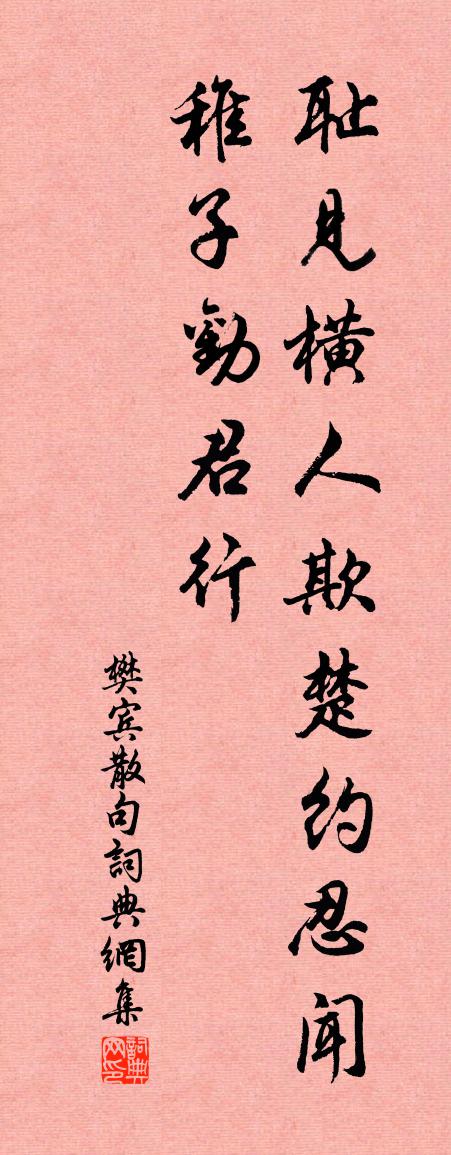 耻见横人欺楚约忍闻
稚子劝君行
樊宾散句詞典網集
詞典网印